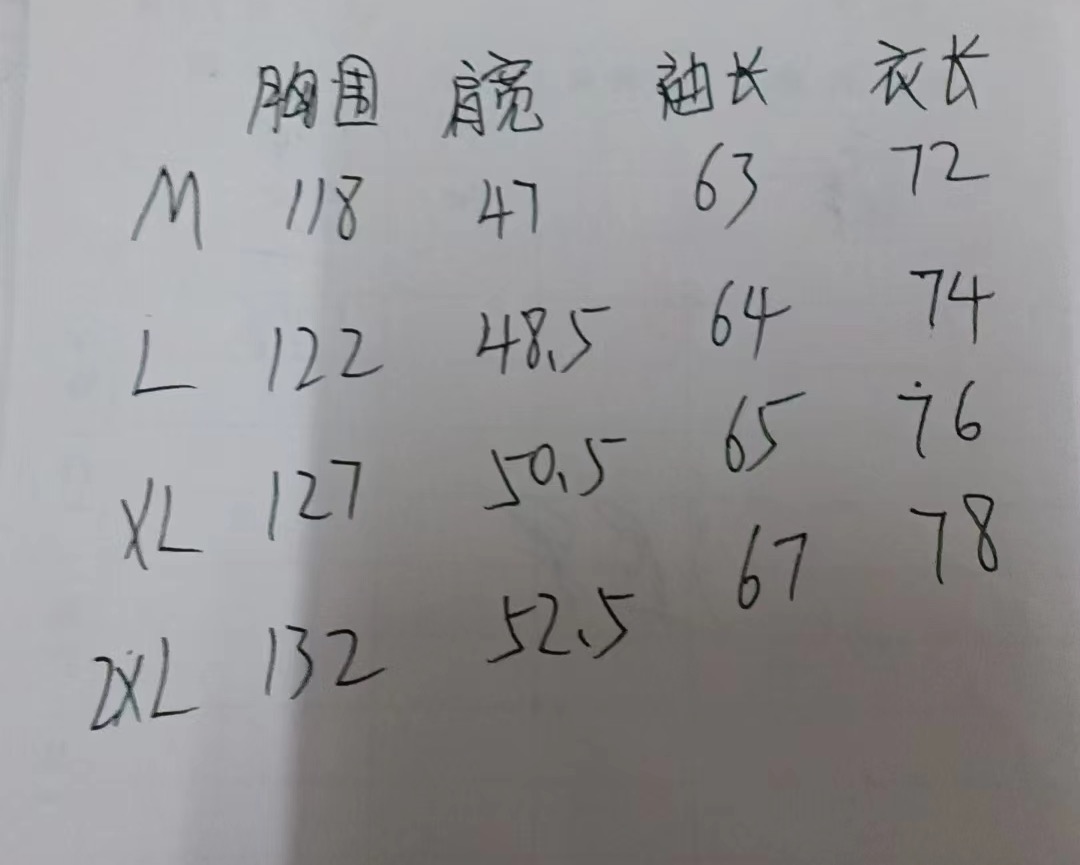 胸围 肩宽 袖长 衣长
M 118 47 63 72
L 122 48.5 64 74
XL 127 50.5 65 76
2XL 132 52.5 67 78